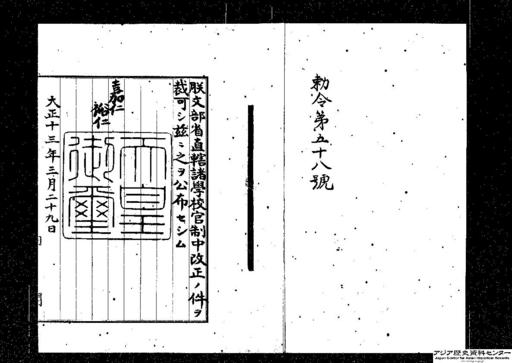 勅令第五十八號
朕文部省直轄諸學校官制中改正ノ件ヲ
裁可シ茲ニ之ヲ公布セシム
嘉仁
裕仁
天皇
御璽
大正十三年三月二十九日
アジア歴史資料センター
Japan Center for Asian Historical Records